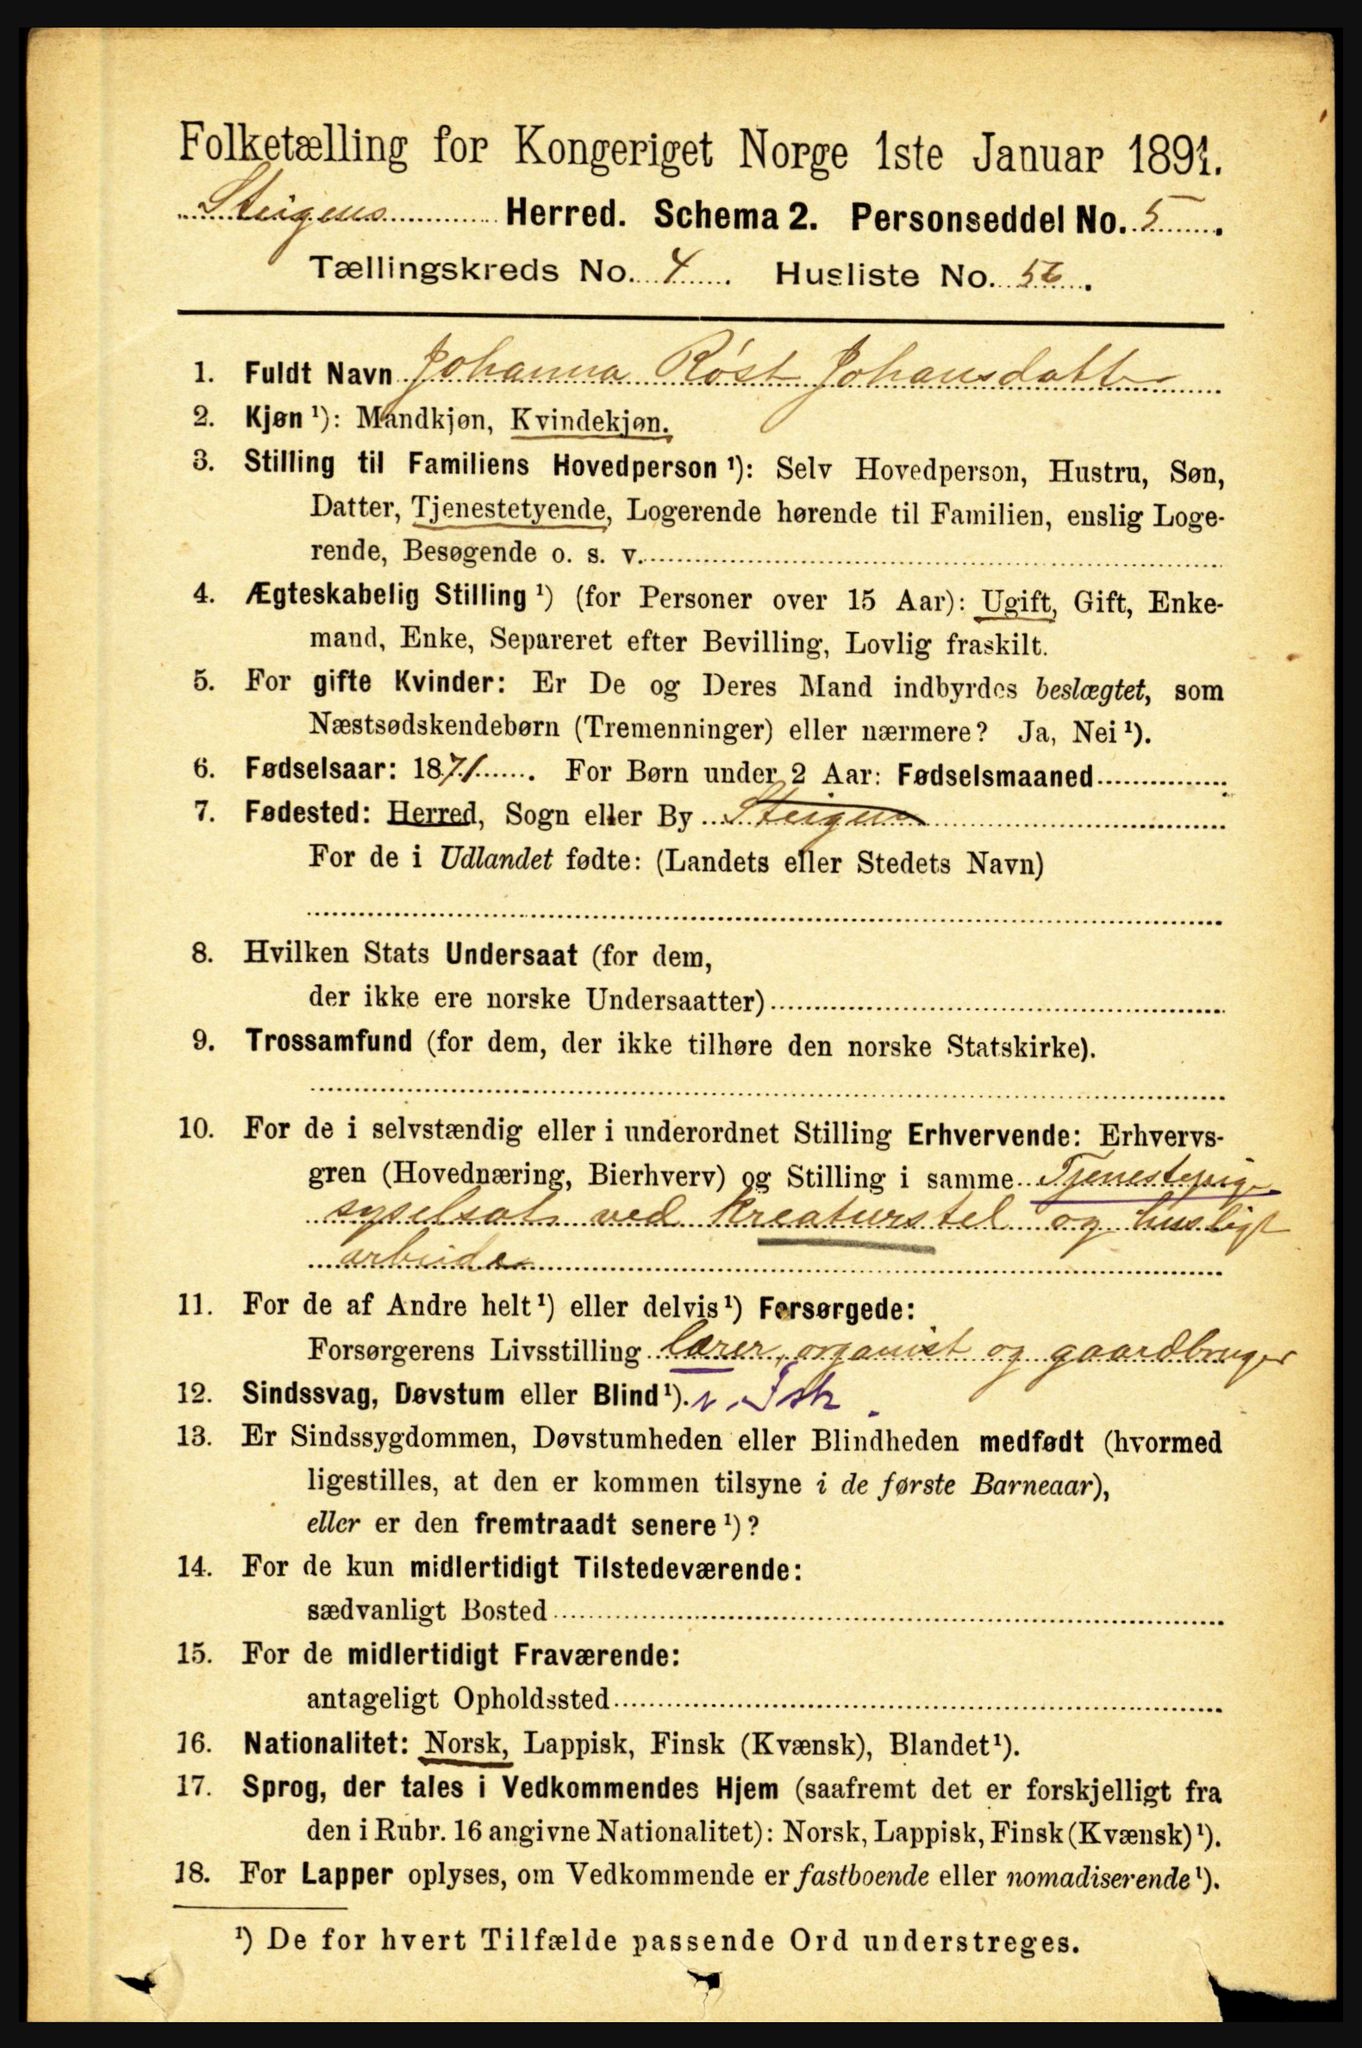 Folketælling for Kongeriget Norge 1ste Januar 1891.
Steigens Herred. Schema 2. Personseddel No. 5.
Tællingskreds No. 4. Husliste No. 56.
1. Fuldt Navn Johanna Røst Johansdatter
2. Kjøn ¹): Mandkjøn, Kvindekjøn.
3. Stilling til Familiens Hovedperson ¹): Selv Hovedperson, Hustru, Søn,
Datter, Tjenestetyende, Logerende hørende til Familien, enslig Loge-
rende, Besøgende o. s. v.
4. Ægteskabelig Stilling ¹) (for Personer over 15 Aar): Ugift, Gift, Enke-
mand, Enke, Separeret efter Bevilling, Lovlig fraskilt.
5. For gifte Kvinder: Er De og Deres Mand indbyrdes beslægtet, som
Næstsødskendebørn (Tremenninger) eller nærmere? Ja, Nei ¹).
6. Fødselsaar: 1871. For Børn under 2 Aar: Fødselsmaaned
7. Fødested: Herred, Sogn eller By Steigen
For de i Udlandet fødte: (Landets eller Stedets Navn)
8. Hvilken Stats Undersaat (for dem,
der ikke ere norske Undersaatter)
9. Trossamfund (for dem, der ikke tilhøre den norske Statskirke).
10. For de i selvstændig eller i underordnet Stilling Erhvervende: Erhvervs-
gren (Hovednæring, Bierhverv) og Stilling i samme Tjenestepige
syselsat ved kreaturstel og husligt
arbeide
11. For de af Andre helt ¹) eller delvis ¹) Forsørgede:
Forsørgerens Livsstilling lærer, organist og gaardbruger
12. Sindssvag, Døvstum eller Blind ¹).
13. Er Sindssygdommen, Døvstumheden eller Blindheden medfødt (hvormed
ligestilles, at den er kommen tilsyne i de første Barneaar),
eller er den fremtraadt senere ¹)?
14. For de kun midlertidigt Tilstedeværende:
sædvanligt Bosted
15. For de midlertidigt Fraværende:
antageligt Opholdssted
16. Nationalitet: Norsk, Lappisk, Finsk (Kvænsk), Blandet ¹).
17. Sprog, der tales i Vedkommendes Hjem (saafremt det er forskjelligt fra
den i Rubr. 16 angivne Nationalitet): Norsk, Lappisk, Finsk (Kvænsk) ¹).
18. For Lapper oplyses, om Vedkommende er fastboende eller nomadiserende ¹).
¹) De for hvert Tilfælde passende Ord understreges.